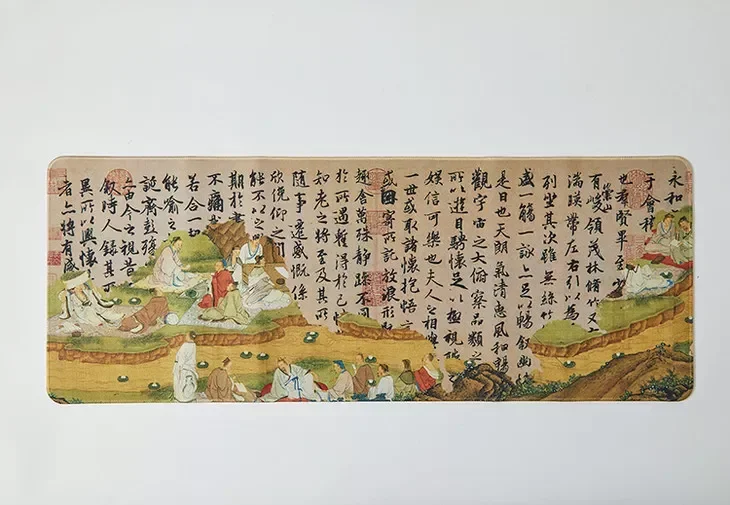 永和
于會稽
也羣賢畢至少
有崇山峻領茂林脩竹又
湍暎帶左右引以為
列坐其次雖無絲竹
盛一觴一詠亦足以暢敘幽情
是日也天朗氣清惠風和暢
觀宇宙之大俯察品類之
所以遊目騁懷足以極視聽
娛信可樂也夫人之相與
一世或取諸懷抱悟言
或因寄所託放浪形骸
趣舍萬殊靜躁不同
於所遇暫得於己快
知老之將至及其所
隨事遷感慨係
欣俛仰之閒
能不以之興
期於盡
不痛哉
若合一契
能喻之
誕齊彭殤
亦由今之視昔
敘時人錄其所
異所以興懷
者亦將有感